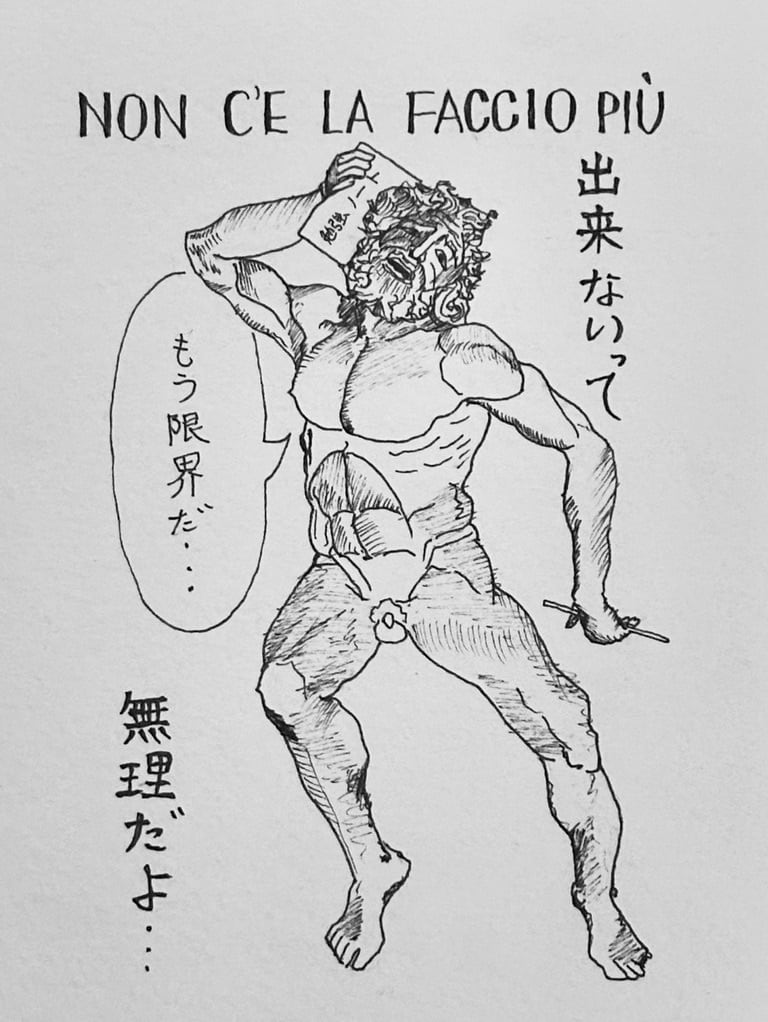 NON C'E LA FACCIO PIÙ
出来ないって
勉強ノート
もう限界だ...
無理だよ...